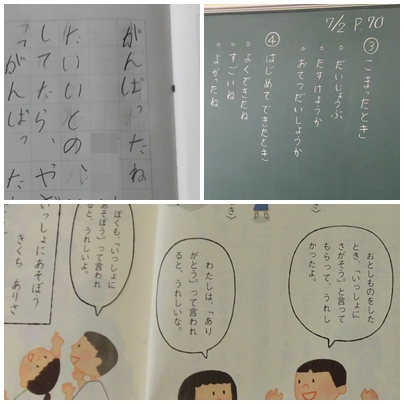 がんばったね
していたら、やさ
「がんばった
7/2 P.70
③ こまったとき
。だいじょうぶ
。たすけようか
。おてつだいしようか
④ はじめてできたとき
。よくできたね
。すごいね
。よかったね
おとしものをした
とき、「いっしょに
さがそう。」と言って
もらって、うれし
かったよ。
わたしは、「あり
がとう。」って言われ
ると、うれしいな。
ぼくも、「いっしょに
あそぼう。」って言われ
ると、うれしいよ。
いっしょにあそぼう
きくち ありさ